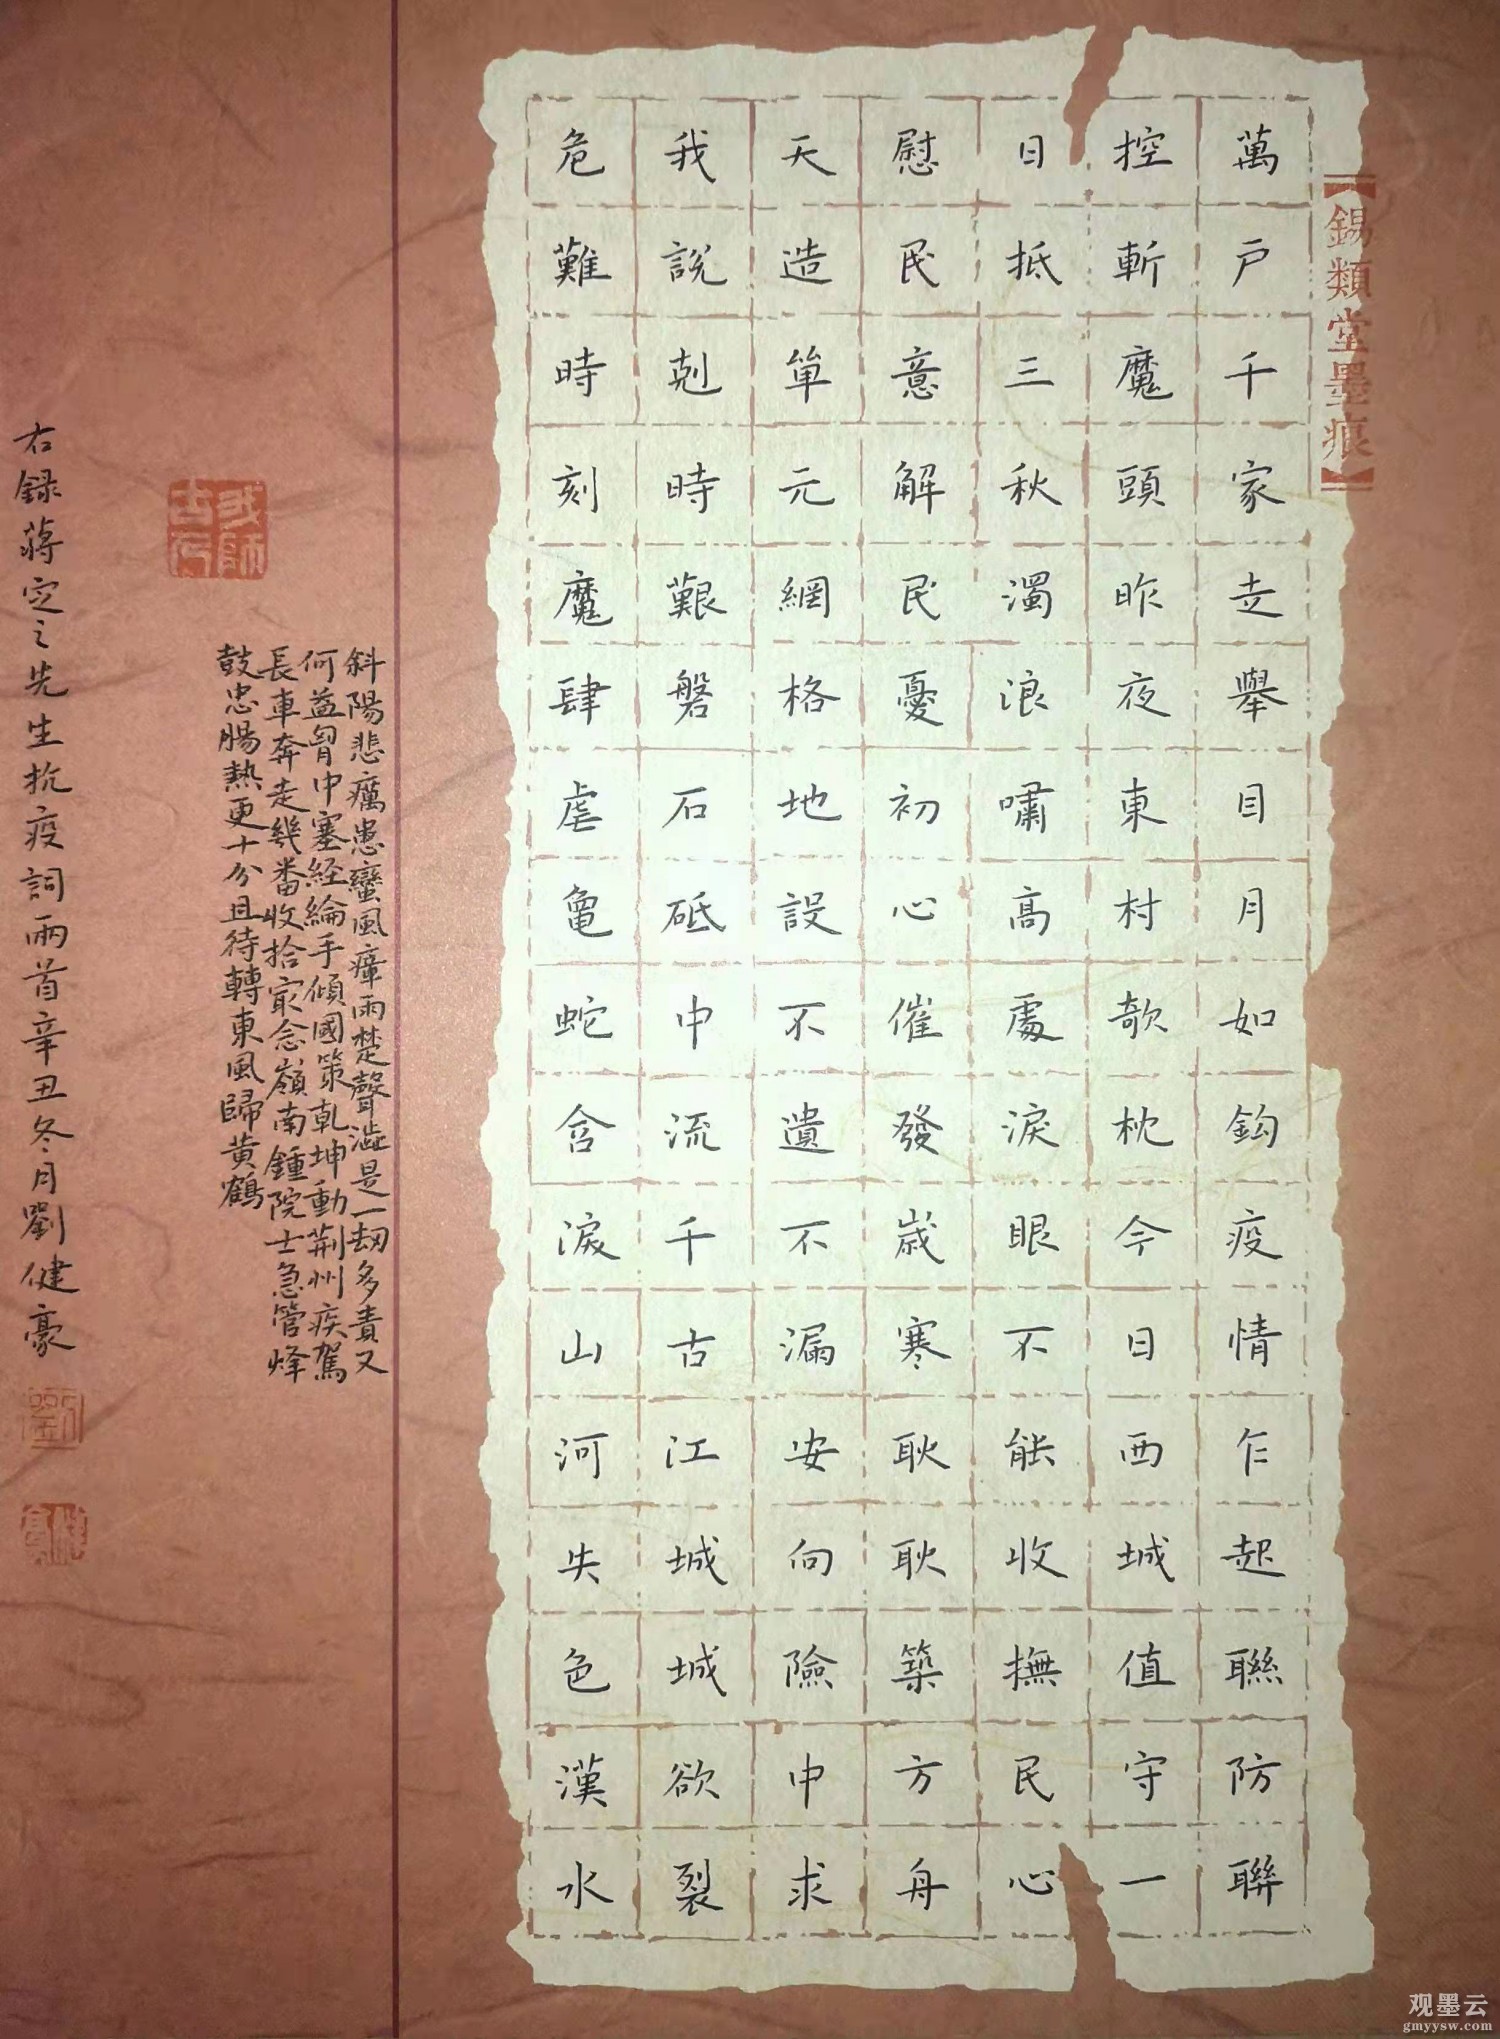 錫類堂墨痕
萬户千家走舉目月如鈎疫情乍起聯防聯
控斬魔頭昨夜東村欹枕今日西城值守一
日抵三秋濁浪嘯高處淚眼不能收撫民心
慰民意解民憂初心催發歲寒耿耿築方舟
天造單元網格地設不遺不漏安向險中求
我說剋時艱磐石砥中流千古江城城欲裂
危難時刻魔肆虐龜蛇含淚山河失色漢水
斜陽悲癘患蠻風瘴雨楚聲澁是一劫多責又
何益胷中塞經綸手傾國策乾坤動荆州疾駕
長車奔走幾番收拾寂念嶺南鍾院士急管烽
鼓忠腸熱更十分且待轉東風歸黄鶴
右録蔣定之先生抗疫詞兩首辛丑冬月劉健豪
观墨云
gmyysw.com